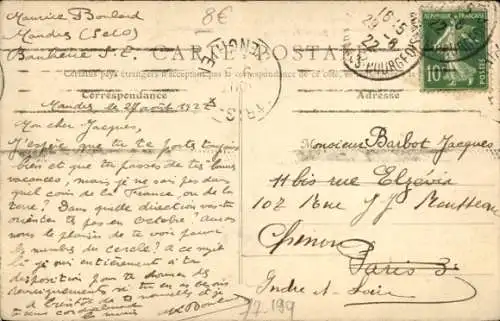 Maurice Boulard
Mandres (S&O)
8€
CARTE POSTALE
Certains pays étrangers n'acceptent pas de correspondance de ce côté
Correspondance
Adresse
10c
POSTES
Mandres le août 1922
Mon cher Jacques,
J'espère que tu te porte toujours
bien et que tu passes de très bonnes
vacances, mais je ne sais pas dans
quel coin de la France ou de la
terre? Dans quelle direction vas-tu
pas en Octobre? Aurons
nous le plaisir de te voir parmi
les membres du cercle? A ce sujet
je suis entièrement à ta
disposition pour te donner des
renseignements si tu en as besoin
A bientôt de tes nouvelles et je
Monsieur Barbot Jacques
11 bis rue Elzévir
102 Rue J J Rousseau
Chinon
Paris 3
Indre et Loire
77-199